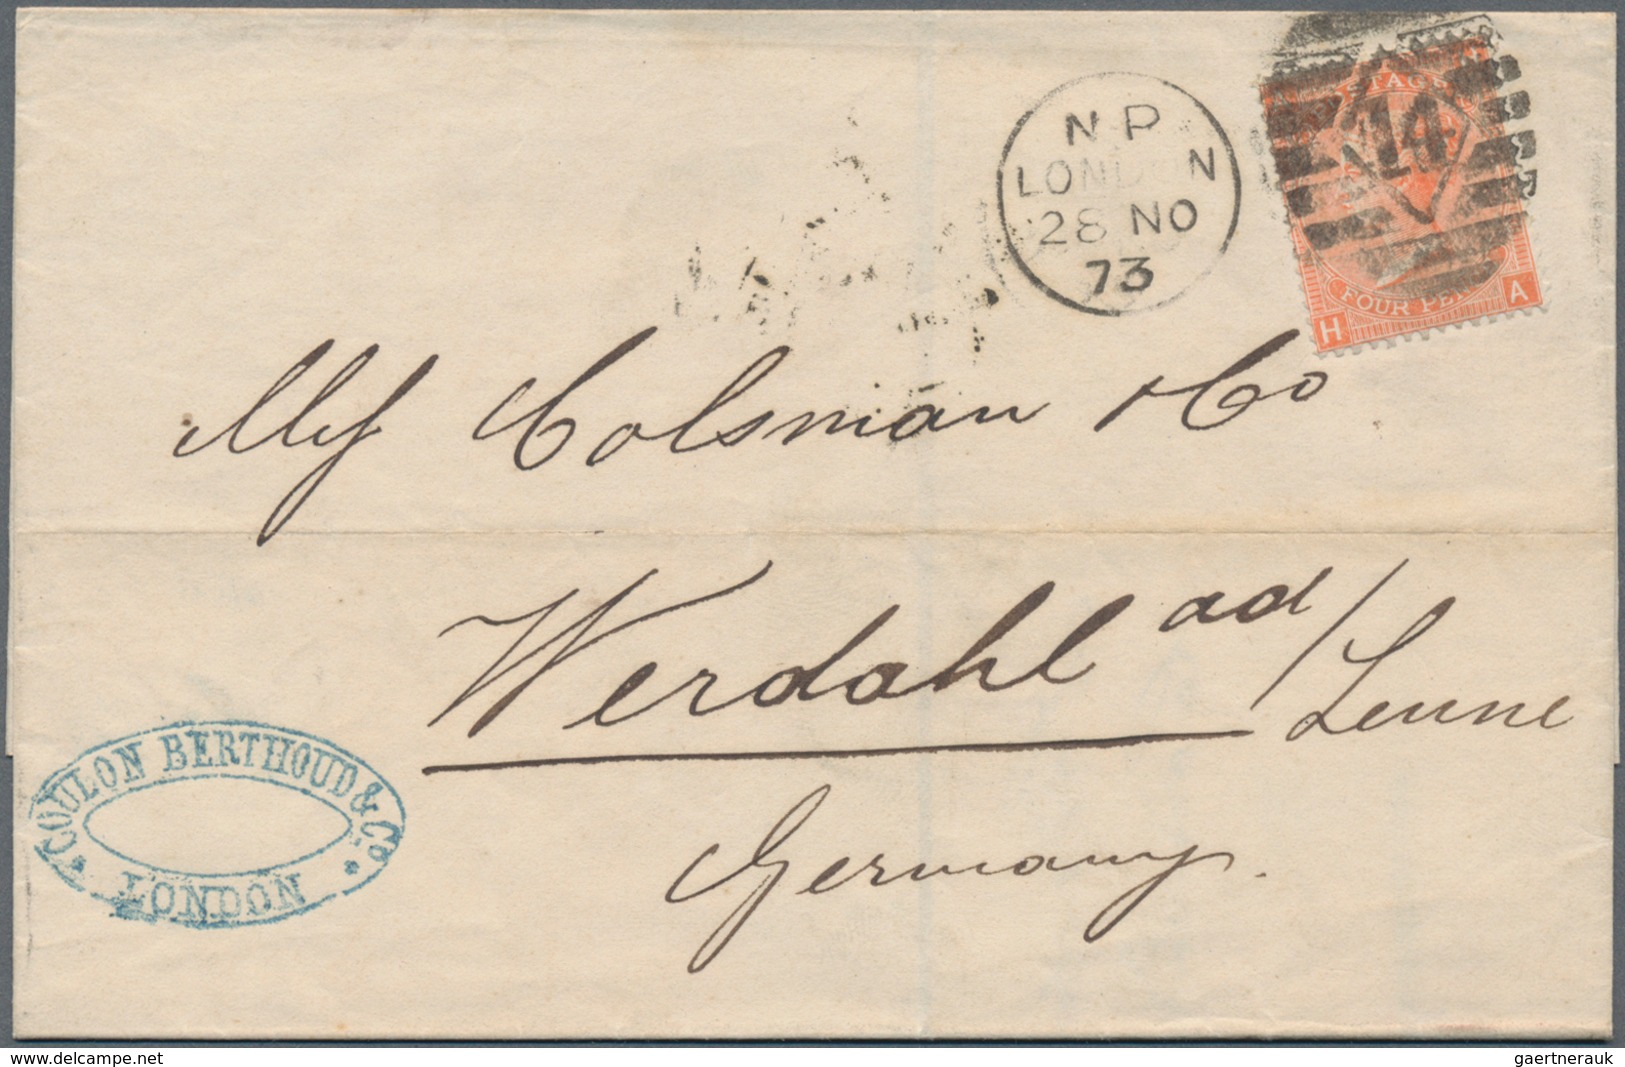 N P
LONDON
28 NO
73
POSTAGE
14
FOUR PEN
H A
Mess Colsman & Co
Werdohl ad/Lenne
Germany.
COULON BERTHOUD & Co
LONDON
www.delcampe.net
gaertnerauk